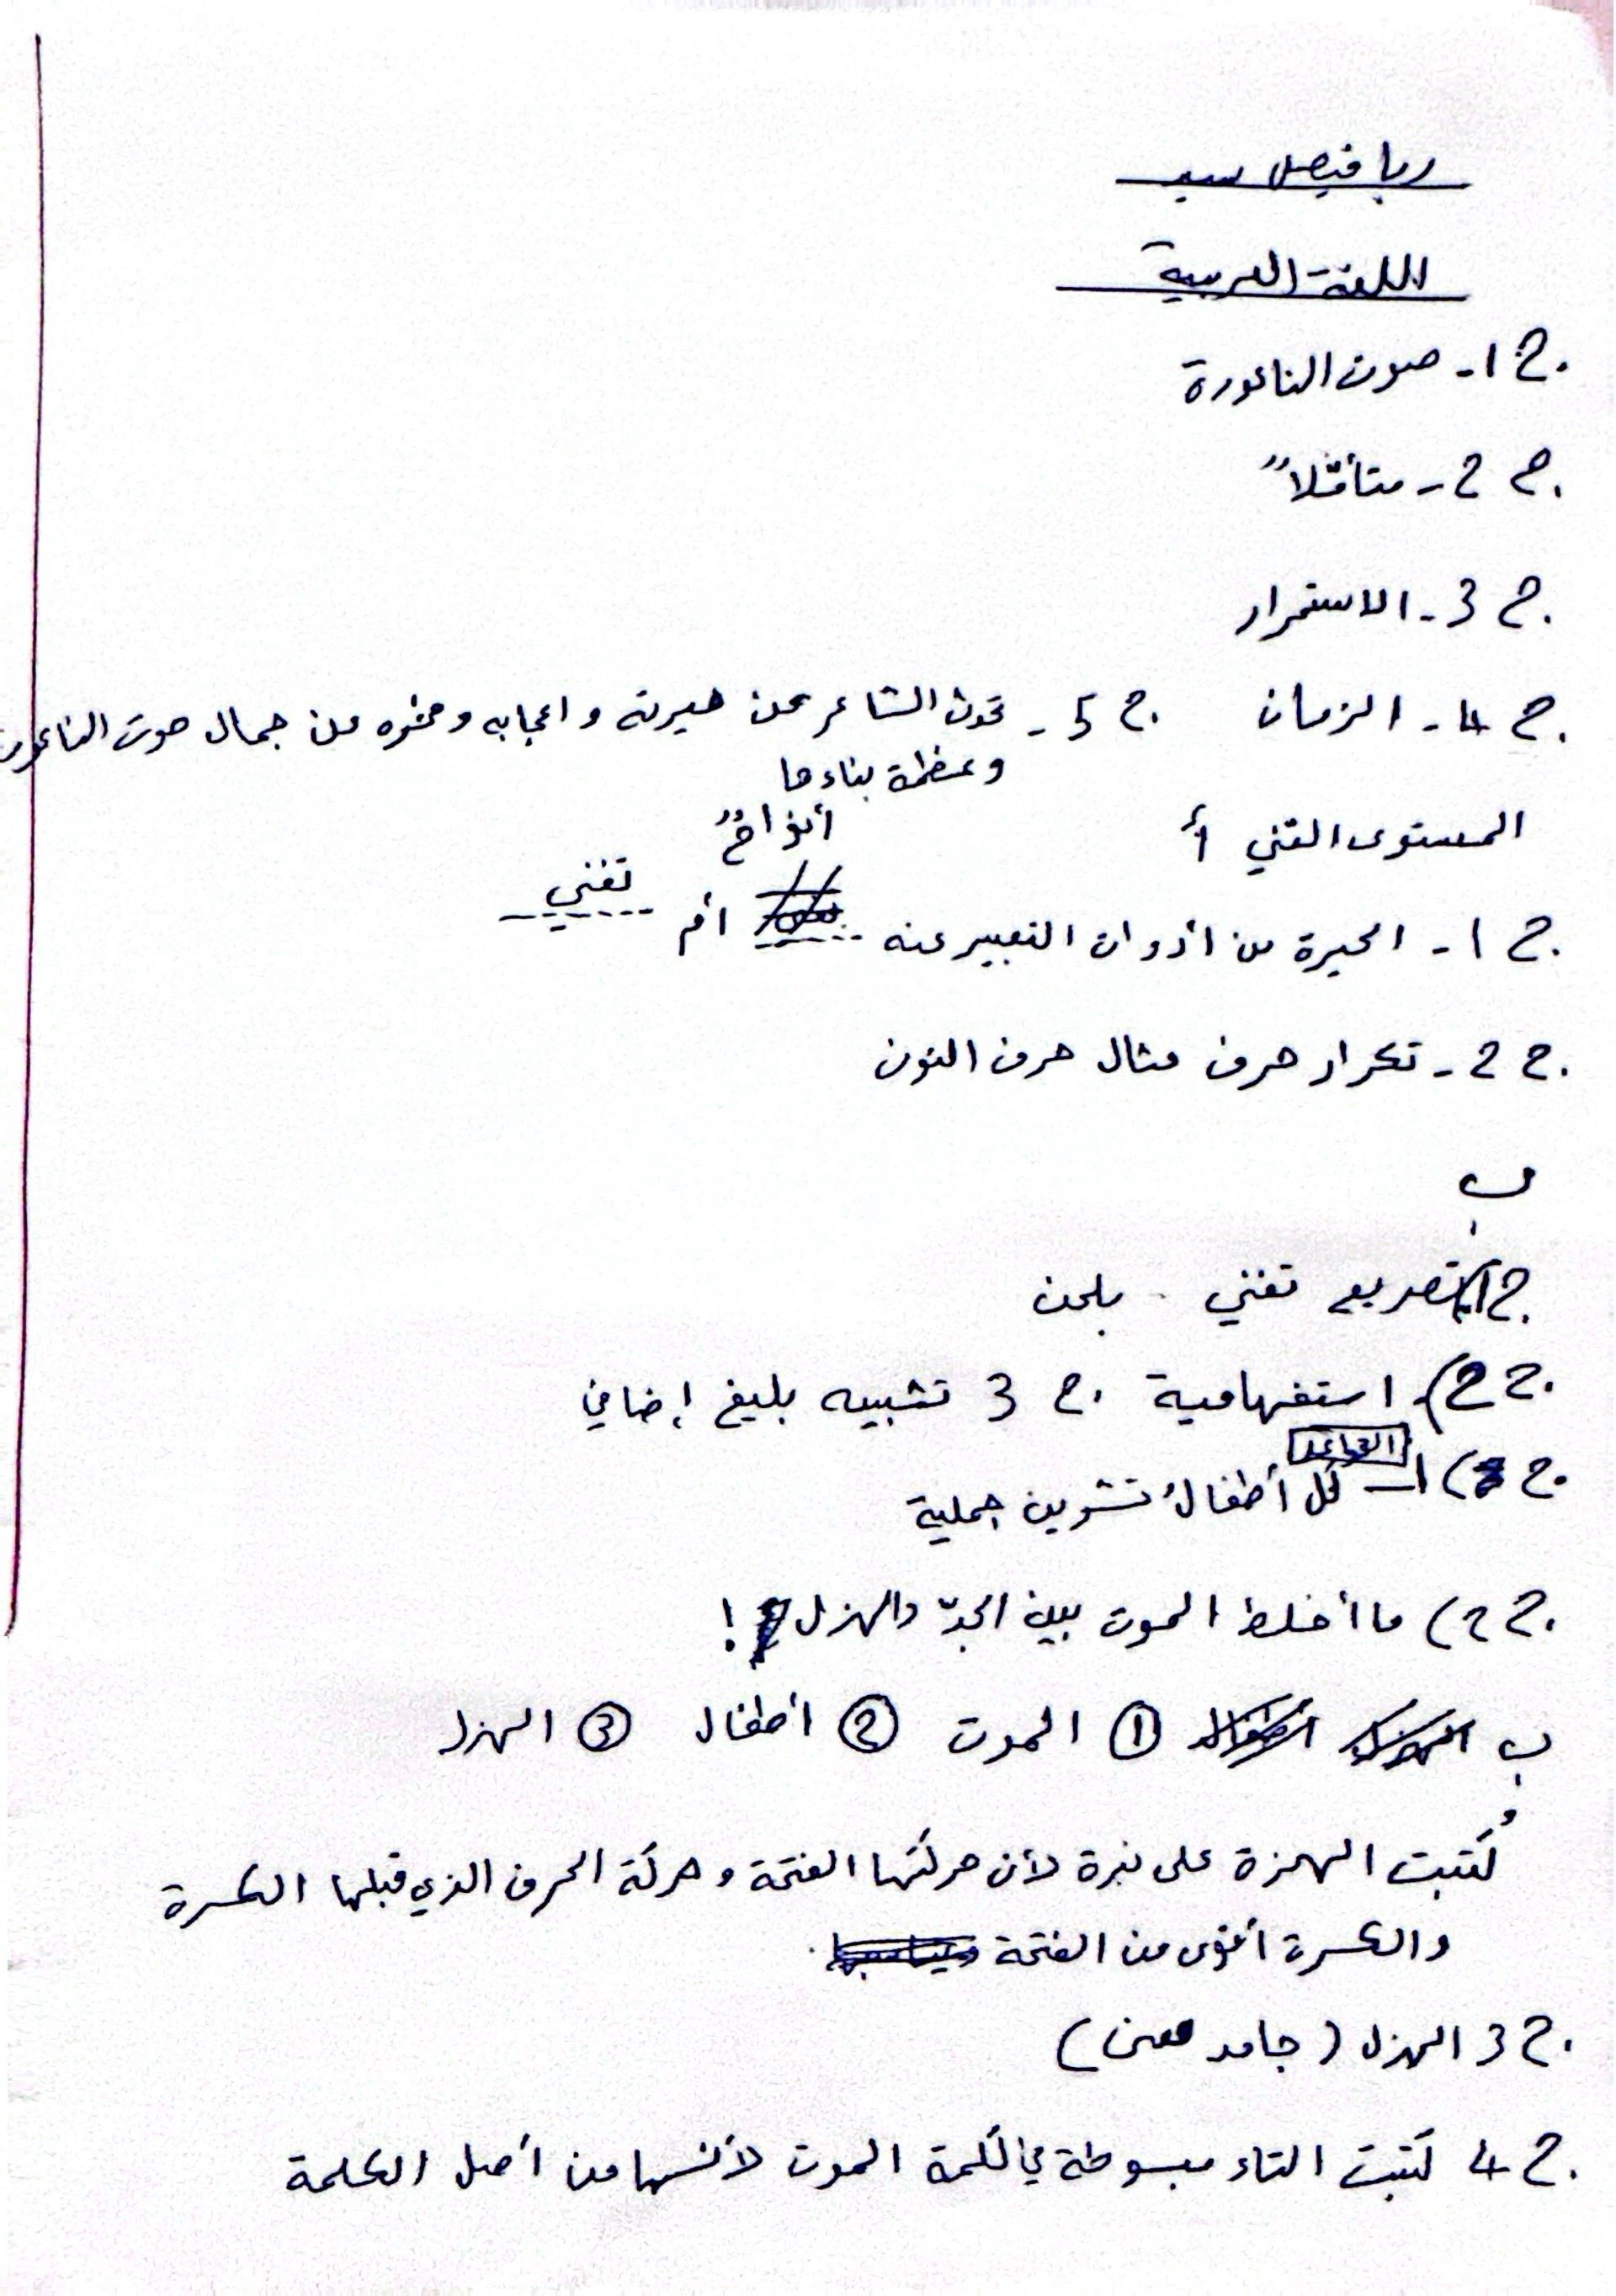 ربا فيصل سيد
اللغة العربية
ج1- صوت الناعورة
ج2- متأمّلاً
ج3- الاستمرار
ج4- الزمان ج5- تحدث الشاعر عن حيرته و اعجابه و من جمال صوت الناعورة
وعظمة بناءها
المستوى الفني أ
أنواحٌ
ج1- الحيرة من أدوات التعبير عنه أم تغني
ج2- تكرار حرف مثال حرف النون
ب
ج1) تصريع تغني . بلحن
ج2) استفهامية ج3 تشبيه بليغ إضافي
القواعد
ج) 1- كل أطفالُ تشرين جملية
ج2) ما أخلط الموت بين الجدّ والهزل !
ب ① الموت ② أطفال ③ الهزل
كُتبت الهمزة على نبرة لأن حركتها الفتحة و حركة الحرف الذي قبلها الكسرة
والكسرة أقوى من الفتحة
ج3 الهزل (جامد معنى)
ج4 كتبت التاء مبسوطة في كلمة الموت لأنها من أصل الكلمة